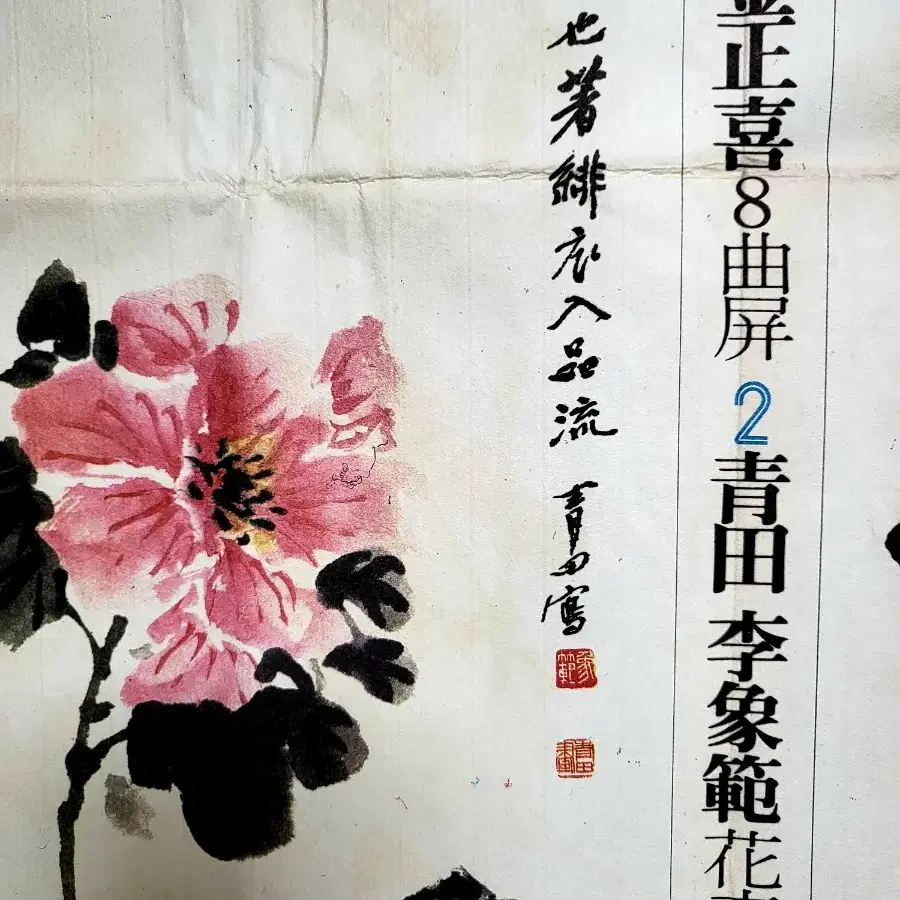 正喜8曲屏 2青田 李象範 花
也著緋衣入品流 青田寫
象範
青田畫